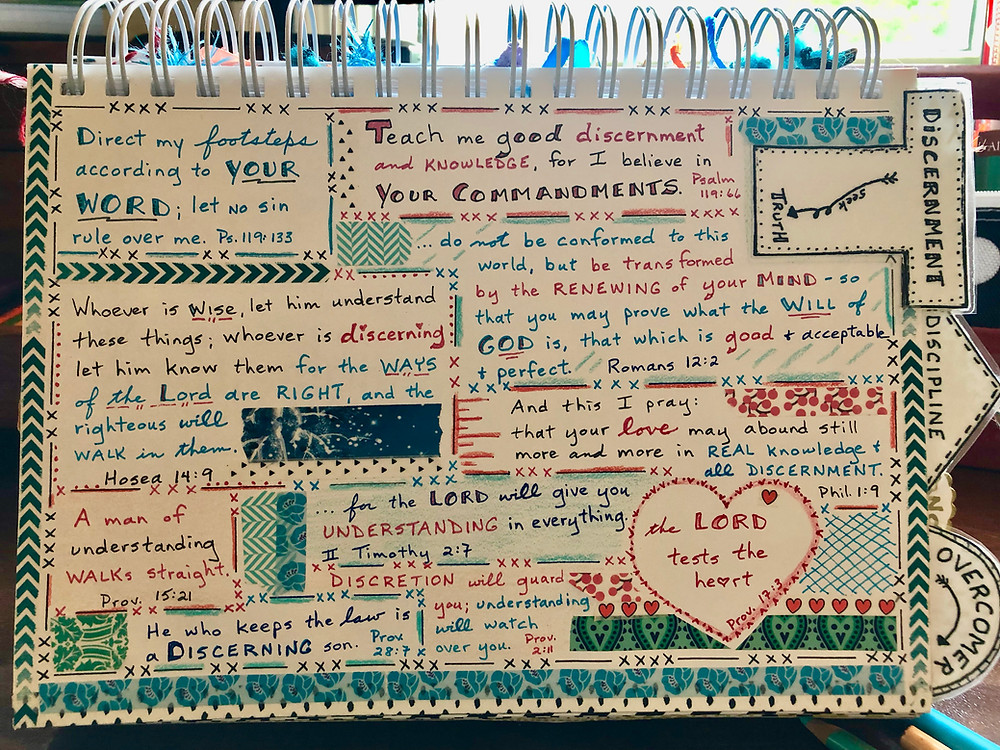 Direct my footsteps
according to YOUR
WORD; let no sin
rule over me. Ps. 119:133
Teach me good discernment
and KNOWLEDGE, for I believe in
YOUR COMMANDMENTS. Psalm
119:66
... do not be conformed to this
world, but be transformed
by the RENEWING of your MIND - so
that you may prove what the WILL of
GOD is, that which is good + acceptable
+ perfect. Romans 12:2
Whoever is wise, let him understand
these things; whoever is discerning
let him know them for the WAYS
of the Lord are RIGHT, and the
righteous will
WALK in them.
Hosea 14:9
And this I pray:
that your love may abound still
more and more in REAL knowledge +
all DISCERNMENT.
Phil. 1:9
A man of
understanding
WALKs straight.
Prov. 15:21
... for the LORD will give you
UNDERSTANDING in everything.
II Timothy 2:7
the LORD
tests the
heart
Prov. 17:3
DISCRETION will guard
you; understanding
will watch
over you. Prov.
2:11
He who keeps the law is
a DISCERNING son. Prov
28:7
DISCERNMENT
seek
TRUTH!
DISCIPLINE
OVERCOMER